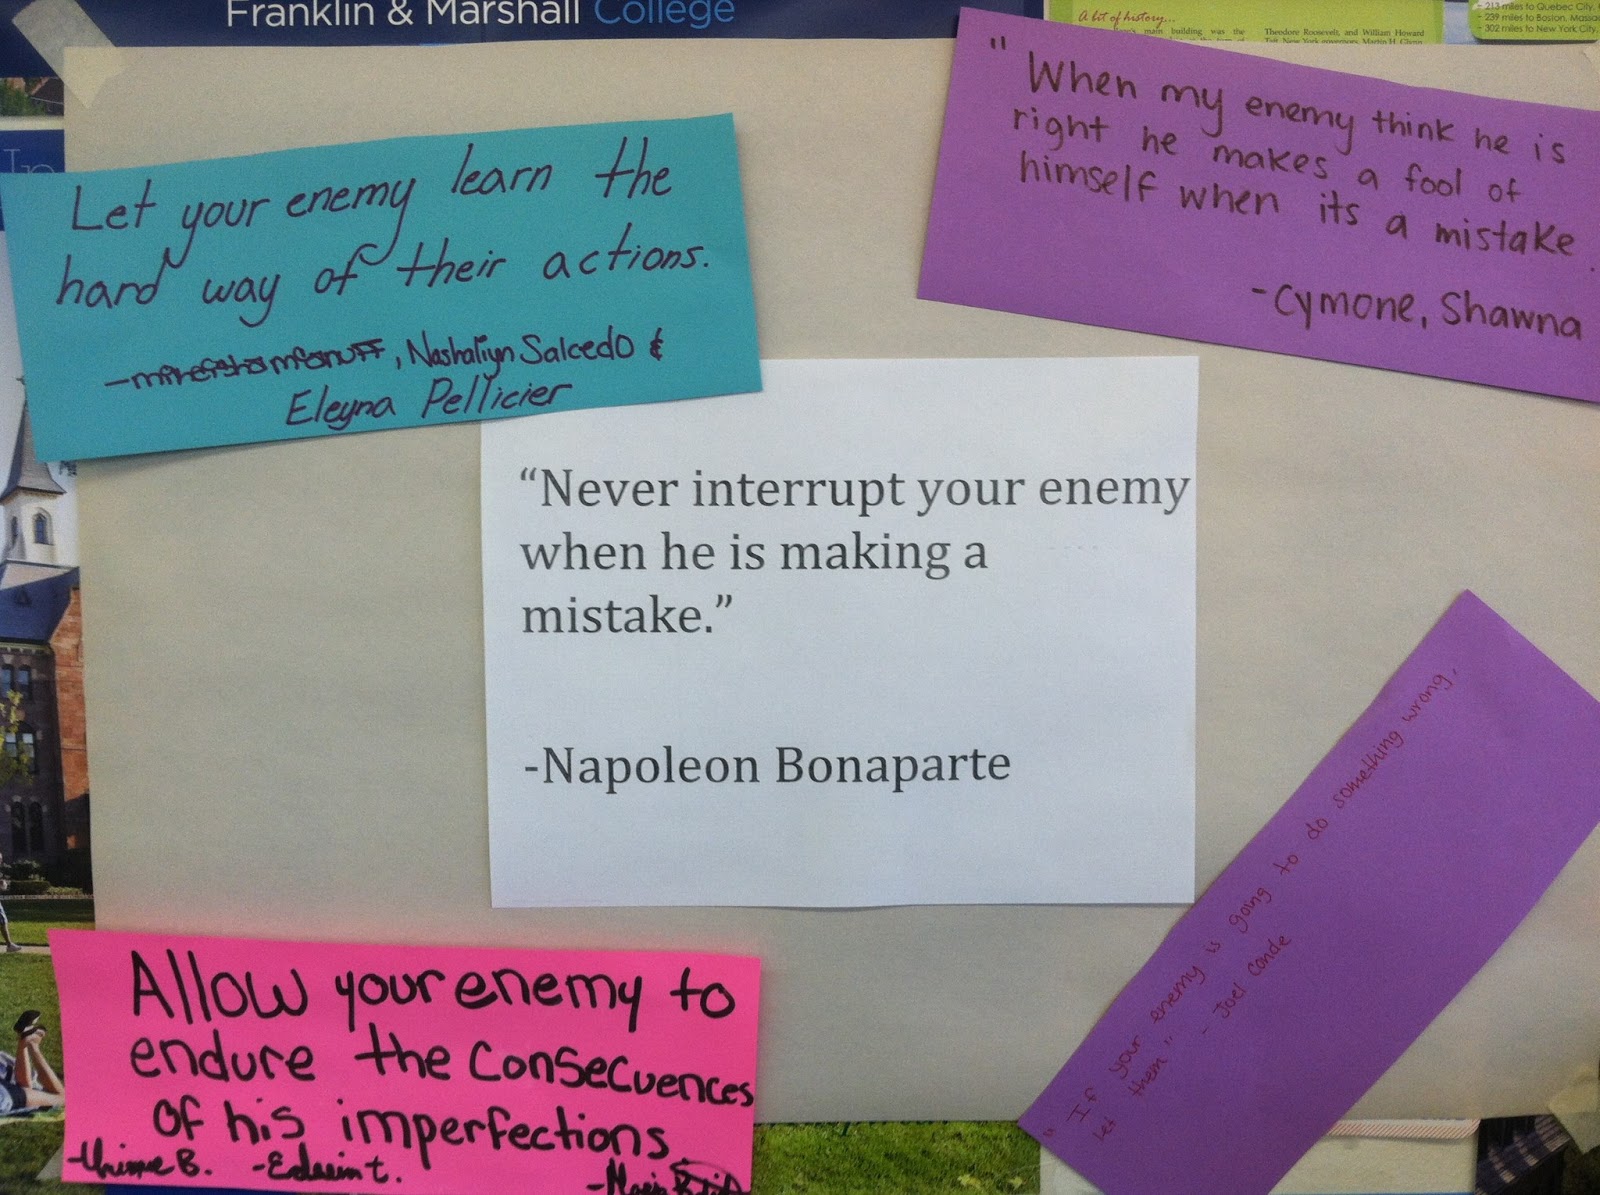 Franklin & Marshall College
A bit of history...
main building was the
Theodore Roosevelt, and William Howard
- 213 miles to Quebec City,
- 239 miles to Boston, Massa
- 302 miles to New York City,
Let your enemy learn the
hard way of their actions.
, Nashaliyn Salcedo &
Eleyna Pellicier
" When my enemy think he is
right he makes a fool of
himself when its a mistake.
- Cymone, Shawna
“Never interrupt your enemy
when he is making a
mistake.”
-Napoleon Bonaparte
Allow your enemy to
endure the consecuences
of his imperfections
B.
" If your enemy is going to do something wrong,
let them " - Joel Conde